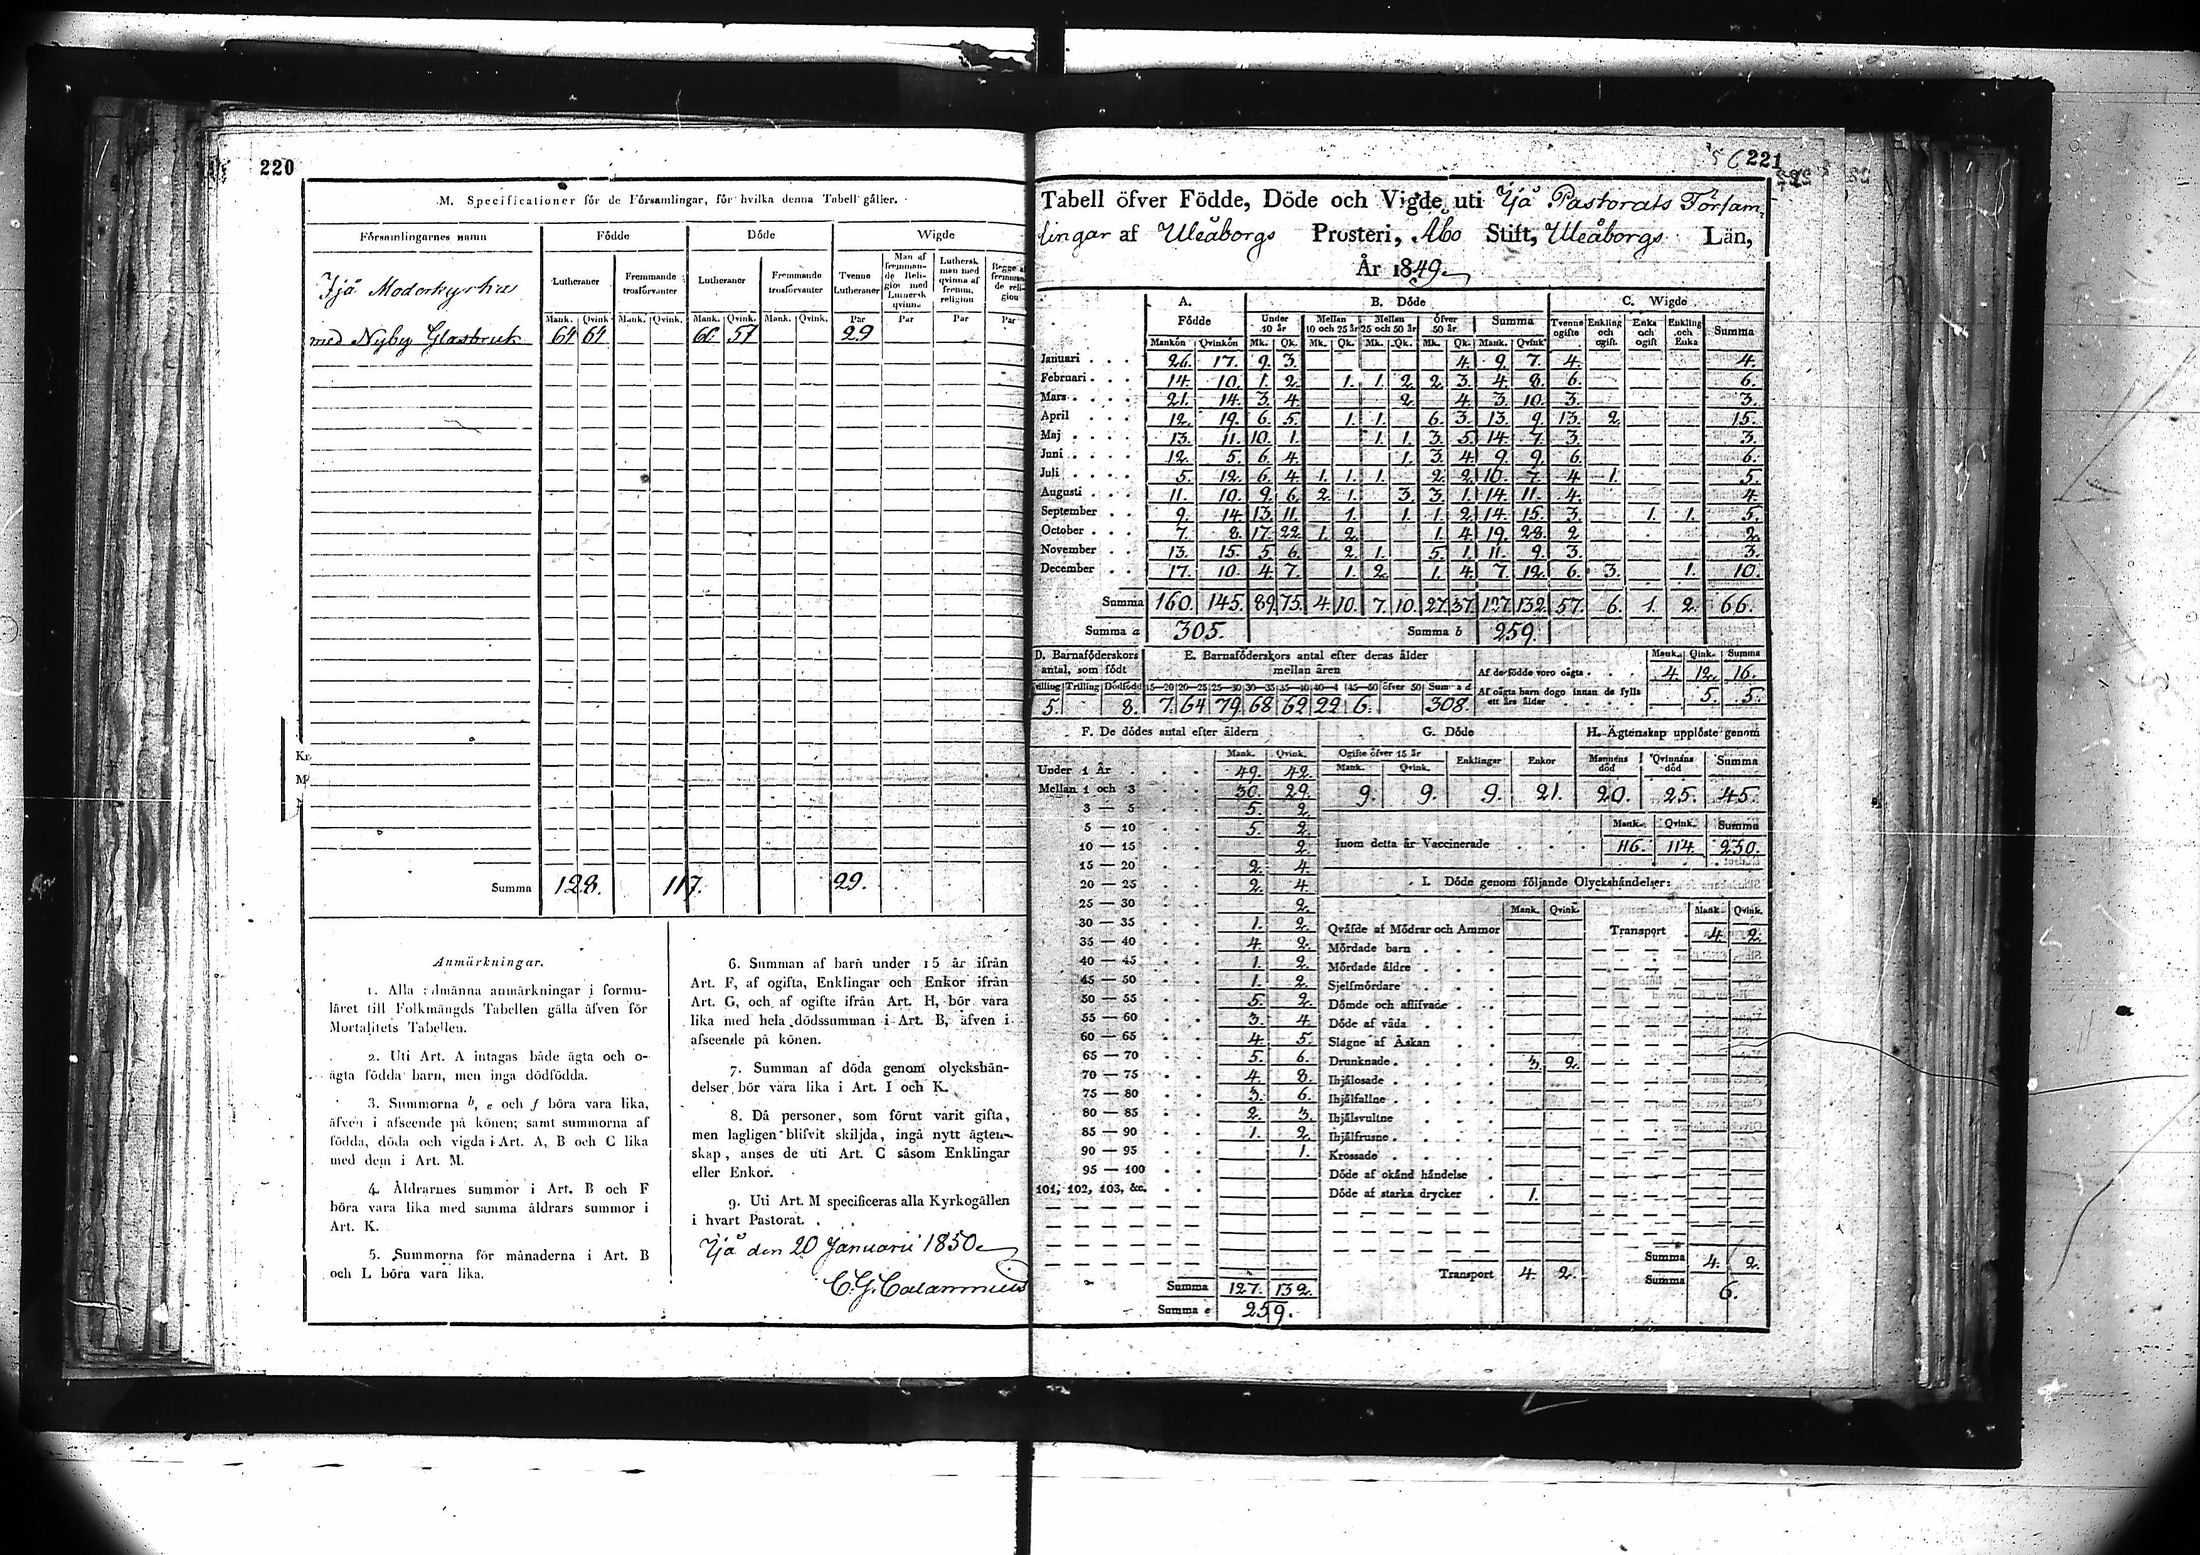 220
M. Specificationer för de Församlingar, för hvilka denna Tabell gäller.
Församlingarnes namn Födde Döde Wigde
Lutheraner Fremmande trosförvanter Lutheraner Fremmande trosförvanter Tvenne Lutheraner Man af fremmande Religion med Luthersk qvinna Luthersk man med qvinna af fremm. religion Begge af fremmande religion
Mank. Qvink. Mank. Qvink. Mank. Qvink. Mank. Qvink. Par Par Par Par
Ijå Moderkyrka
med Nyby Glasbruk 64 64 60 57 29
Summa 128. 117. 29.
Anmärkningar.
1. Alla allmänna anmärkningar i formu-
läret till Folkmängds Tabellen gälla äfven för
Mortalitets Tabellen.
2. Uti Art. A intagas både ägta och o-
ägta födda barn, men inga dödfödda.
3. Summorna b, e och f böra vara lika,
äfven i afseende på könen; samt summorna af
födda, döda och vigda i Art. A, B och C lika
med dem i Art. M.
4. Åldrarnes summor i Art. B och F
böra vara lika med samma åldrars summor i
Art. K.
5. Summorna för månaderna i Art. B
och L böra vara lika.
6. Summan af barn under 15 år ifrån
Art. F, af ogifta, Enklingar och Enkor ifrån
Art. G, och af ogifte ifrån Art. H, bör vara
lika med hela dödssumman i Art. B, äfven i
afseende på könen.
7. Summan af döda genom olyckshän-
delser bör vara lika i Art. I och K.
8. Då personer, som förut varit gifta,
men lagligen blifvit skiljda, ingå nytt ägten-
skap, anses de uti Art. C såsom Enklingar
eller Enkor.
9. Uti Art. M specificeras alla Kyrkogällen
i hvart Pastorat.
Ijå den 20 Januarii 1850
C. G. Calamnius
56 221
Tabell öfver Födde, Döde och Vigde uti Ijå Pastorats Försam-
lingar af Uleåborgs Prosteri, Åbo Stift, Uleåborgs Län,
År 1849
A. B. Döde C. Wigde
Födde Under 10 år Mellan 10 och 25 år Mellan 25 och 50 år öfver 50 år Summa Tvenne ogifte Enkling och ogift Enka och ogift Enkling och Enka Summa
Mankön Qvinkön Mk. Qk. Mk. Qk. Mk. Qk. Mk. Qk. Mank. Qvink
Januari . . . 26. 17. 9. 3. 4. 9. 7. 4. 4.
Februari . . . 14. 10. 1. 2. 1. 1. 2. 2. 3. 4. 8. 6. 6.
Mars . . . . 21. 14. 3. 4. 2. 4. 3. 10. 3. 3.
April . . . 12. 19. 6. 5. 1. 1. 6. 3. 13. 9. 13. 2. 15.
Maj . . . . 13. 11. 10. 1. 1. 1. 3. 5. 14. 7. 3. 3.
Juni . . . . 12. 5. 6. 4. 1. 3. 4. 9. 9. 6. 6.
Juli . . . . 5. 12. 6. 4. 1. 1. 1. 2. 2. 10. 7. 4. 1. 5.
Augusti . . . 11. 10. 9. 6. 2. 1. 3. 3. 1. 14. 11. 4. 4.
September . . 9. 14. 13. 11. 1. 1. 1. 2. 14. 15. 3. 1. 1. 5.
October . . . 7. 8. 17. 22. 1. 2. 1. 4. 19. 28. 2. 2.
November . . 13. 15. 5. 6. 2. 1. 5. 1. 11. 9. 3. 3.
December . . 17. 10. 4. 7. 1. 2. 1. 4. 7. 12. 6. 3. 1. 10.
Summa 160. 145. 89. 75. 4. 10. 7. 10. 27. 37. 127. 132. 57. 6. 1. 2. 66.
Summa a 305. Summa b 259.
D. Barnaföderskors antal, som födt E. Barnaföderskors antal efter deras ålder mellan åren Mank. Qink. Summa
Af de födde voro oägta . . . 4. 12. 16.
Tvilling Trilling Dödfödd 15—20 20—25 25—30 30—35 35—40 40—4 45—50 öfver 50 Summa d
Af oägta barn dogo innan de fyllt ett års ålder . . . 5. 5.
5. 8. 7. 64 79 68 62 22 6. 308.
F. De dödes antal efter åldern G. Döde H. Ägtenskap upplöste genom
Mank. Qvink. Ogifte öfver 15 år Enklingar Enkor Mannens död Qvinnans död Summa
Mank. Qvink.
9. 9. 9. 21. 20. 25. 45.
Under 1 År . . . 49. 42.
Mellan 1 och 3 . . 30. 29.
3 — 5 . . 5. 2.
5 — 10 . . 5. 2.
10 — 15 . . 2.
15 — 20 . . 2. 4.
20 — 25 . . 2. 4.
25 — 30 . . 2.
30 — 35 . . 1. 2.
35 — 40 . . 4. 2.
40 — 45 . . 1. 2.
45 — 50 . . 1. 2.
50 — 55 . . 5. 2.
55 — 60 . . 3. 4.
60 — 65 . . 4. 5.
65 — 70 . . 5. 6.
70 — 75 . . 4. 8.
75 — 80 . . 3. 6.
80 — 85 . . 2. 3.
85 — 90 . . 1. 2.
90 — 95 . . 1.
95 — 100 . .
101, 102, 103, &c. . .
Summa 127. 132.
Summa e 259.
Mank. Qvink. Summa
Inom detta år Vaccinerade . . . 116. 114. 230.
I. Döde genom följande Olyckshändelser:
Mank. Qvink. Mank. Qvink.
Qväfde af Mödrar och Ammor Transport . 4. 2.
Mördade barn . . .
Mördade äldre . . .
Sjelfmördare . . .
Dömde och aflifvade . . .
Döde af våda . . .
Slagne af Åskan . .
Drunknade . . . . 3. 2.
Ihjälosade . . . .
Ihjälfallne . . . .
Ihjälsvultne . . .
Ihjälfrusne . . . .
Krossade . . . .
Döde af okänd händelse .
Döde af starka drycker . 1.
Transport 4. 2.
Summa 4. 2.
Summa 6.